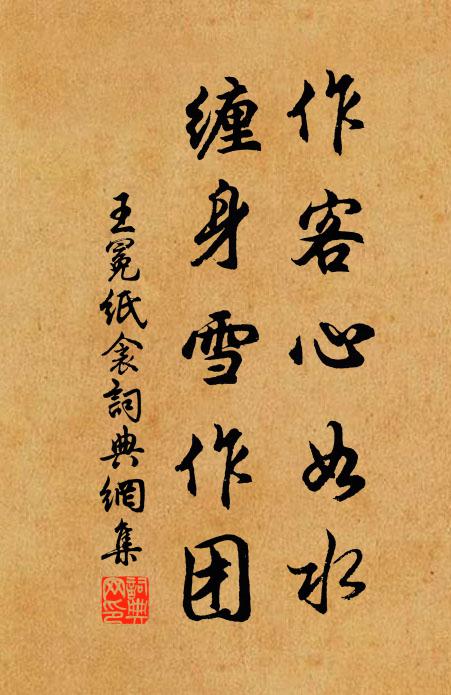 作客心如水
缠身雪作团
王冕纸衾詞典網集
詞典
网印